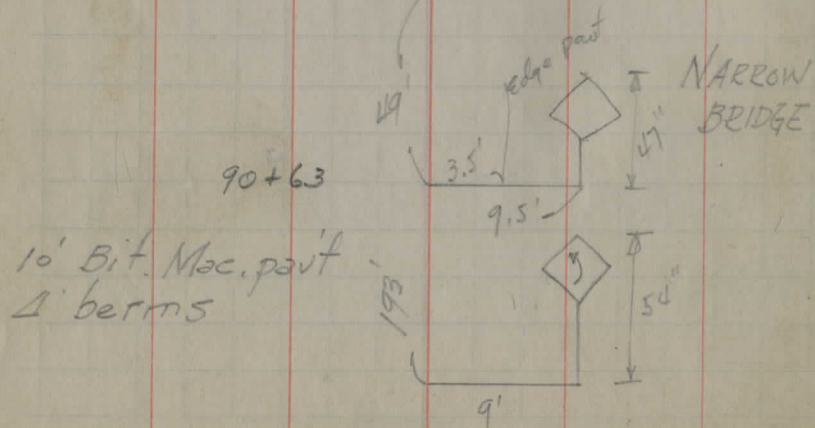 edge pavt
NARROW
BRIDGE
49'
47"
3.5'
90+63
9.5'
10' Bit. Mac. pav't
4' berms
193'
54"
9'